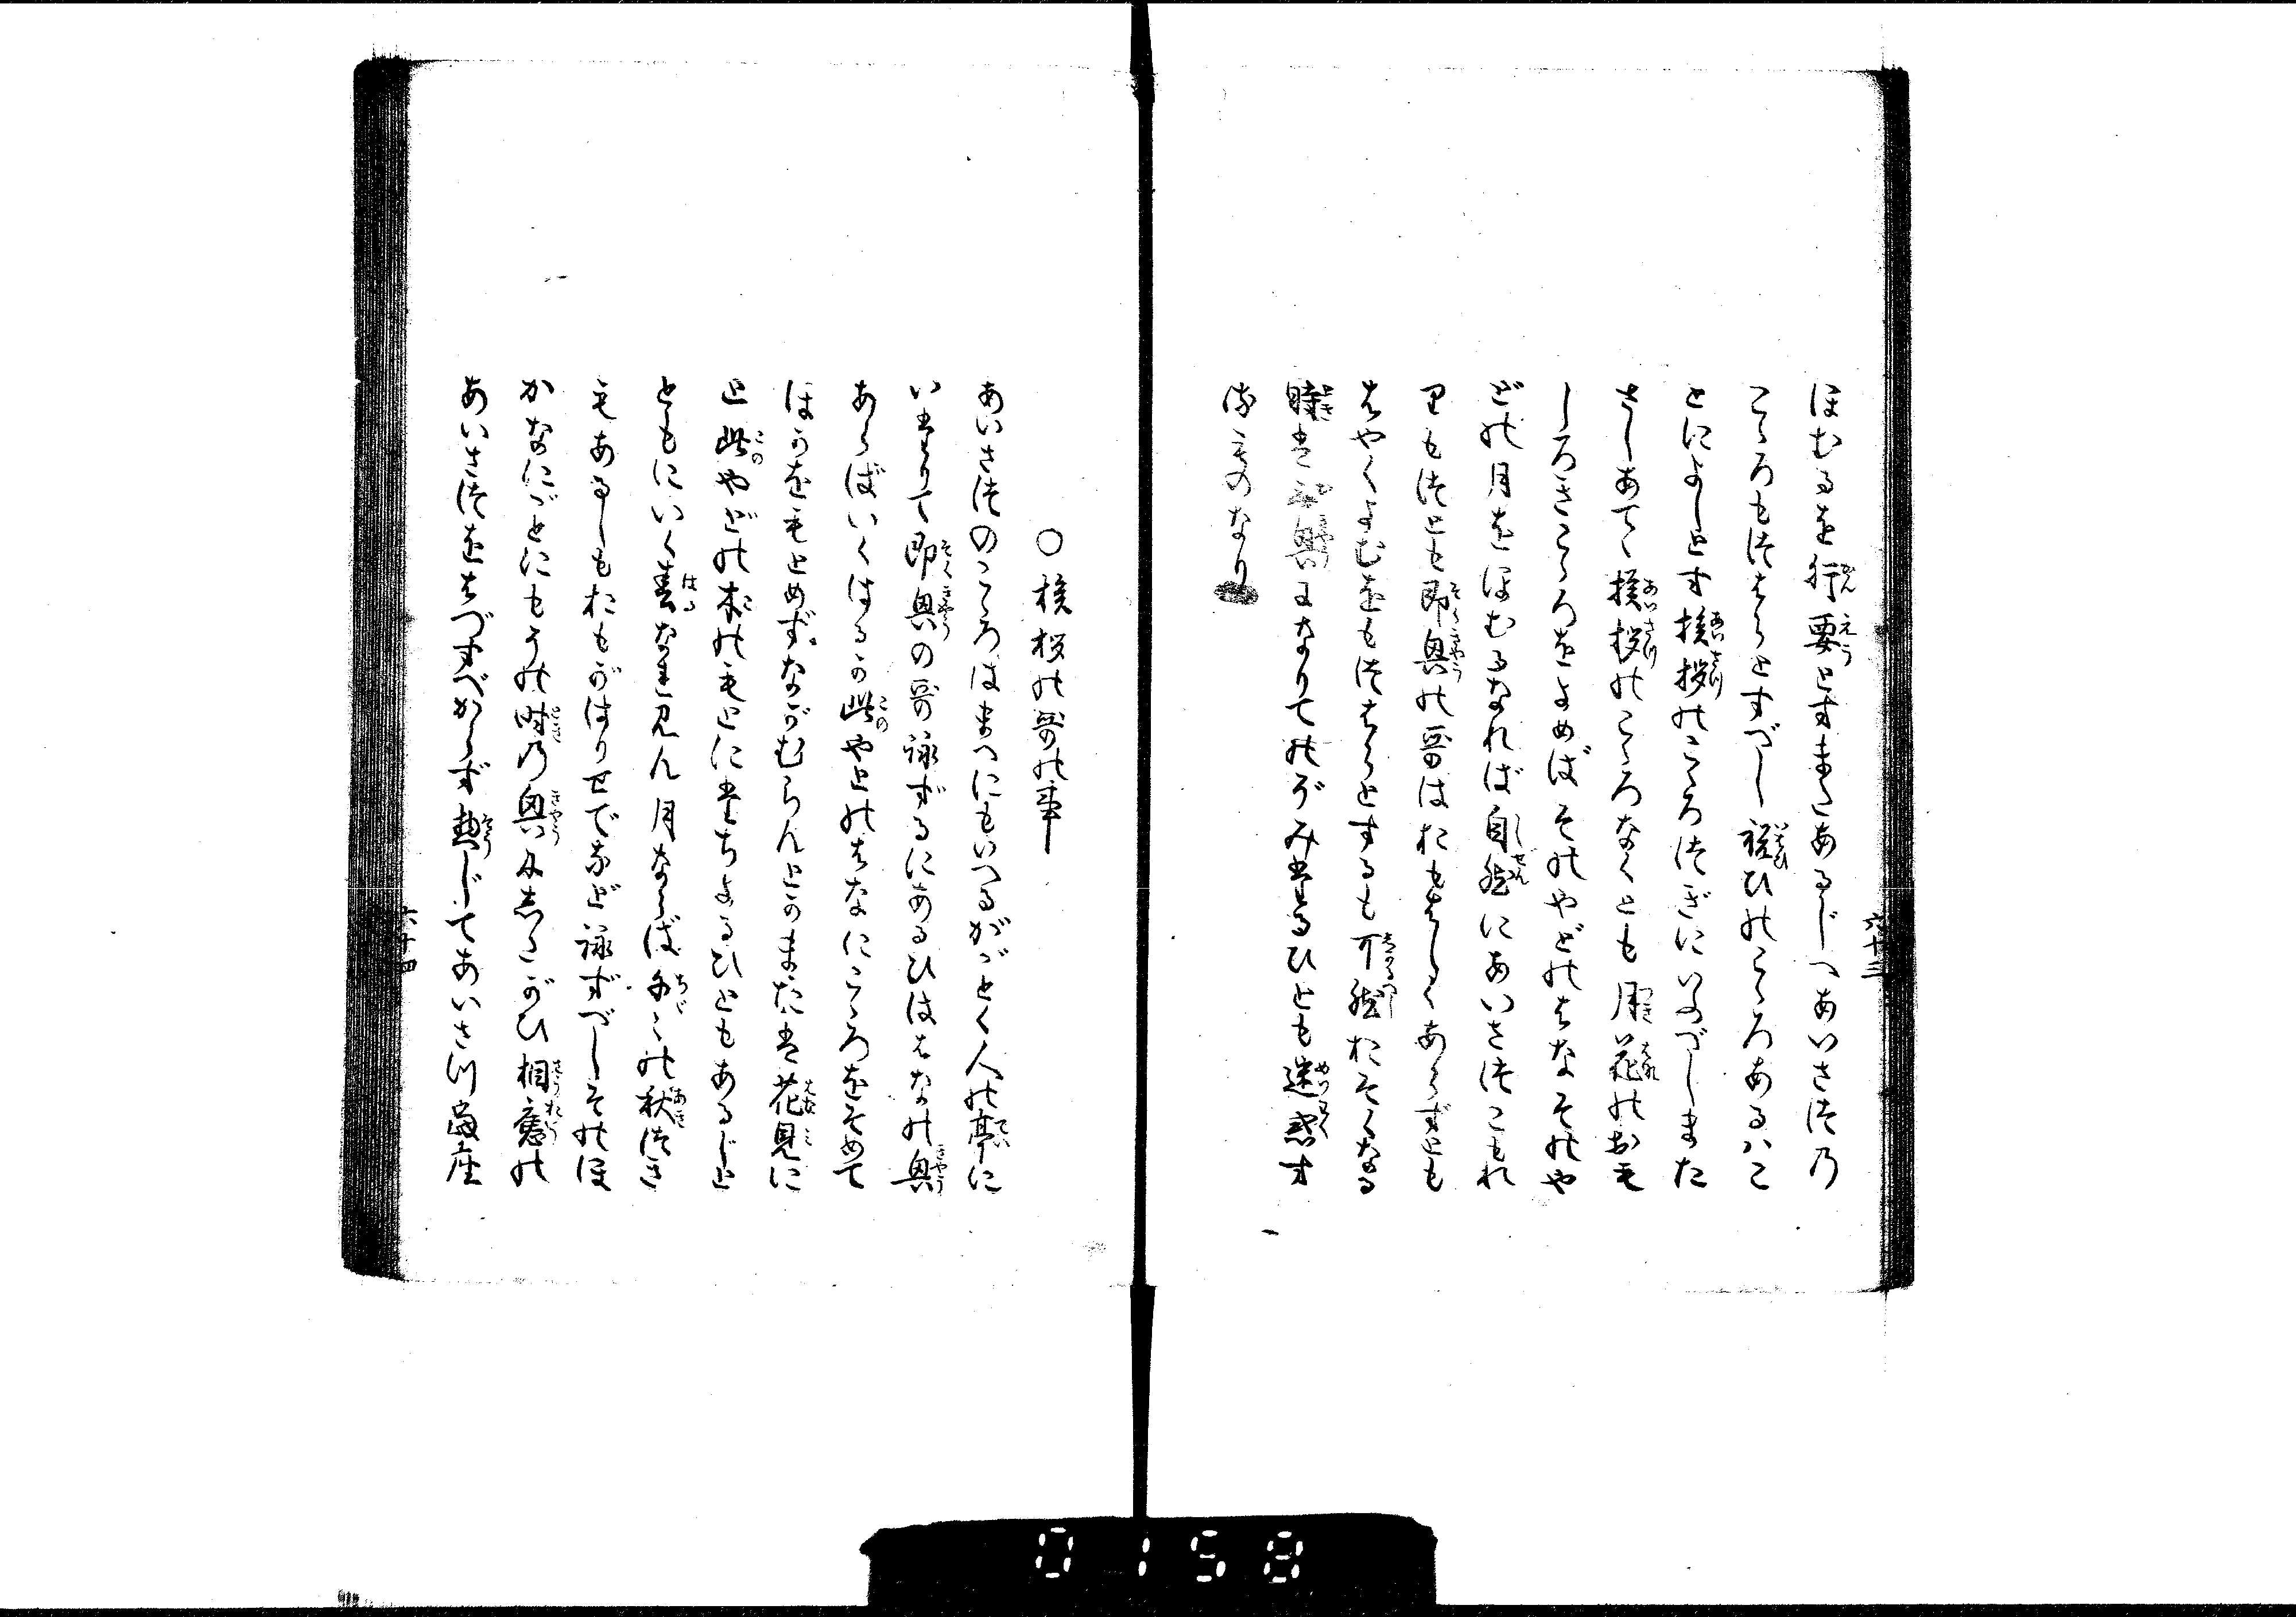 ほむるを肝要とすまたあるじへあいさつ乃
こゝろもつはらとすべし祝ひのこゝろあるハこ
とによしとす挨拶のこゝろつぎにいふべしまた
さしあてゝ挨拶のこゝろなくとも月花のおも
しろきこゝろをよめばそのやどのはなそのや
どの月をほむるなれば自然にあいさつこもれ
りもつとも即興の哥はおもしろくあらずとも
はやくよむをもつはらとするも可然おそくなる
時は無興になりてのぞみたるひとも迷惑す
るものなり
六十三
○挨拶の哥の事
あいさつのこゝろはまへにもいへるがごとく人の亭に
いたりて即興の哥詠ずるにあるひははなの興
あらばいくはるか此やとのはなにこゝろをそめて
ほかをもとめずながむらんとのまたは花見に
と此やどの木のもとにたちよるひともあるじと
ともにいく春なれ見ん月ならば千々の秋つき
もあるじもおもがはりせでなど詠ずべしそのほ
かなにごとにもその時乃興にしたがひ相應の
あいさつをはづすべからず惣じてあいさつ當座
六十四
0158